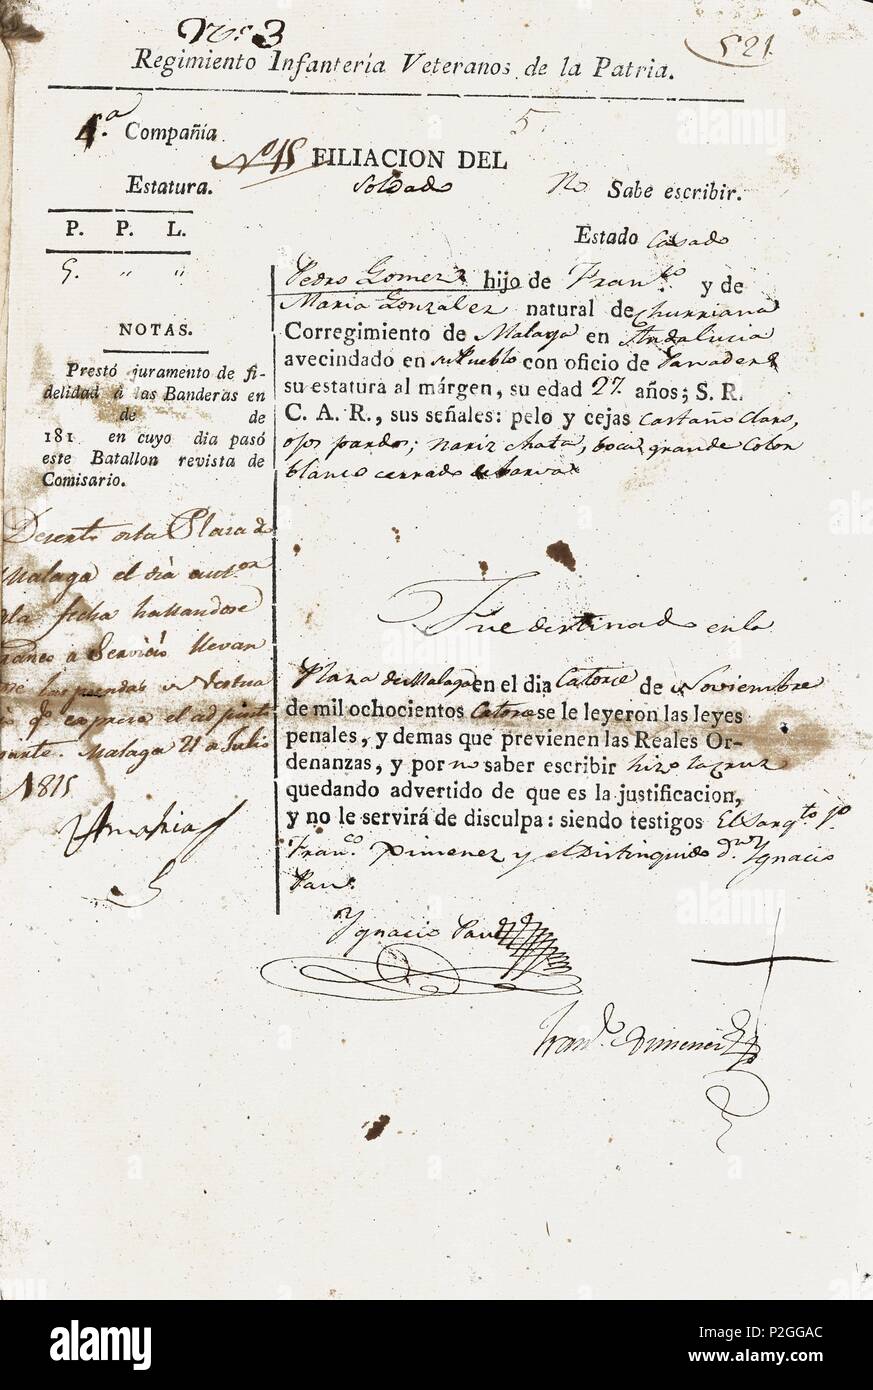 Nº 3
521
Regimiento Infantería Veteranos de la Patria.
4.ª Compañia
5
Nº 15 FILIACION DEL
Estatura.
Soldado
No Sabe escribir.
P. P. L.
Estado Casado
5. " "
Pedro Gomez hijo de Fran.co y de
Maria Gonzalez natural de Churriana
Corregimiento de Malaga en Andalucia
avecindado en su Pueblo con oficio de Panadero
su estatura al márgen, su edad 27 años; S. R.
C. A. R., sus señales: pelo y cejas castaño claro,
ojos pardos; nariz chata, boca grande color
blanco cerrado de barva
NOTAS.
Prestó juramento de fi-
delidad á las Banderas en
de de
181 en cuyo dia pasó
este Batallon revista de
Comisario.
Desertó en la Plaza de
Malaga el dia
la fecha hallandose
franco a Servicio llevan
dose las prendas
q.e expresa el adjunto
Malaga 21 a Julio
1815
Fue destinado en la
Plaza de Malaga en el dia Catorce de Noviembre
de mil ochocientos Catorce se le leyeron las leyes
penales, y demas que previenen las Reales Or-
denanzas, y por no saber escribir hizo la cruz
quedando advertido de que es la justificacion,
y no le servirá de disculpa: siendo testigos El Sargto 1º
Fran.co Ximenez y el Distinguido D.n Ygnacio
Ygnacio
Fran.co Ximenez
alamy
alamy
alamy
alamy
alamy
alamy
Image ID: P2GGAC
www.alamy.com